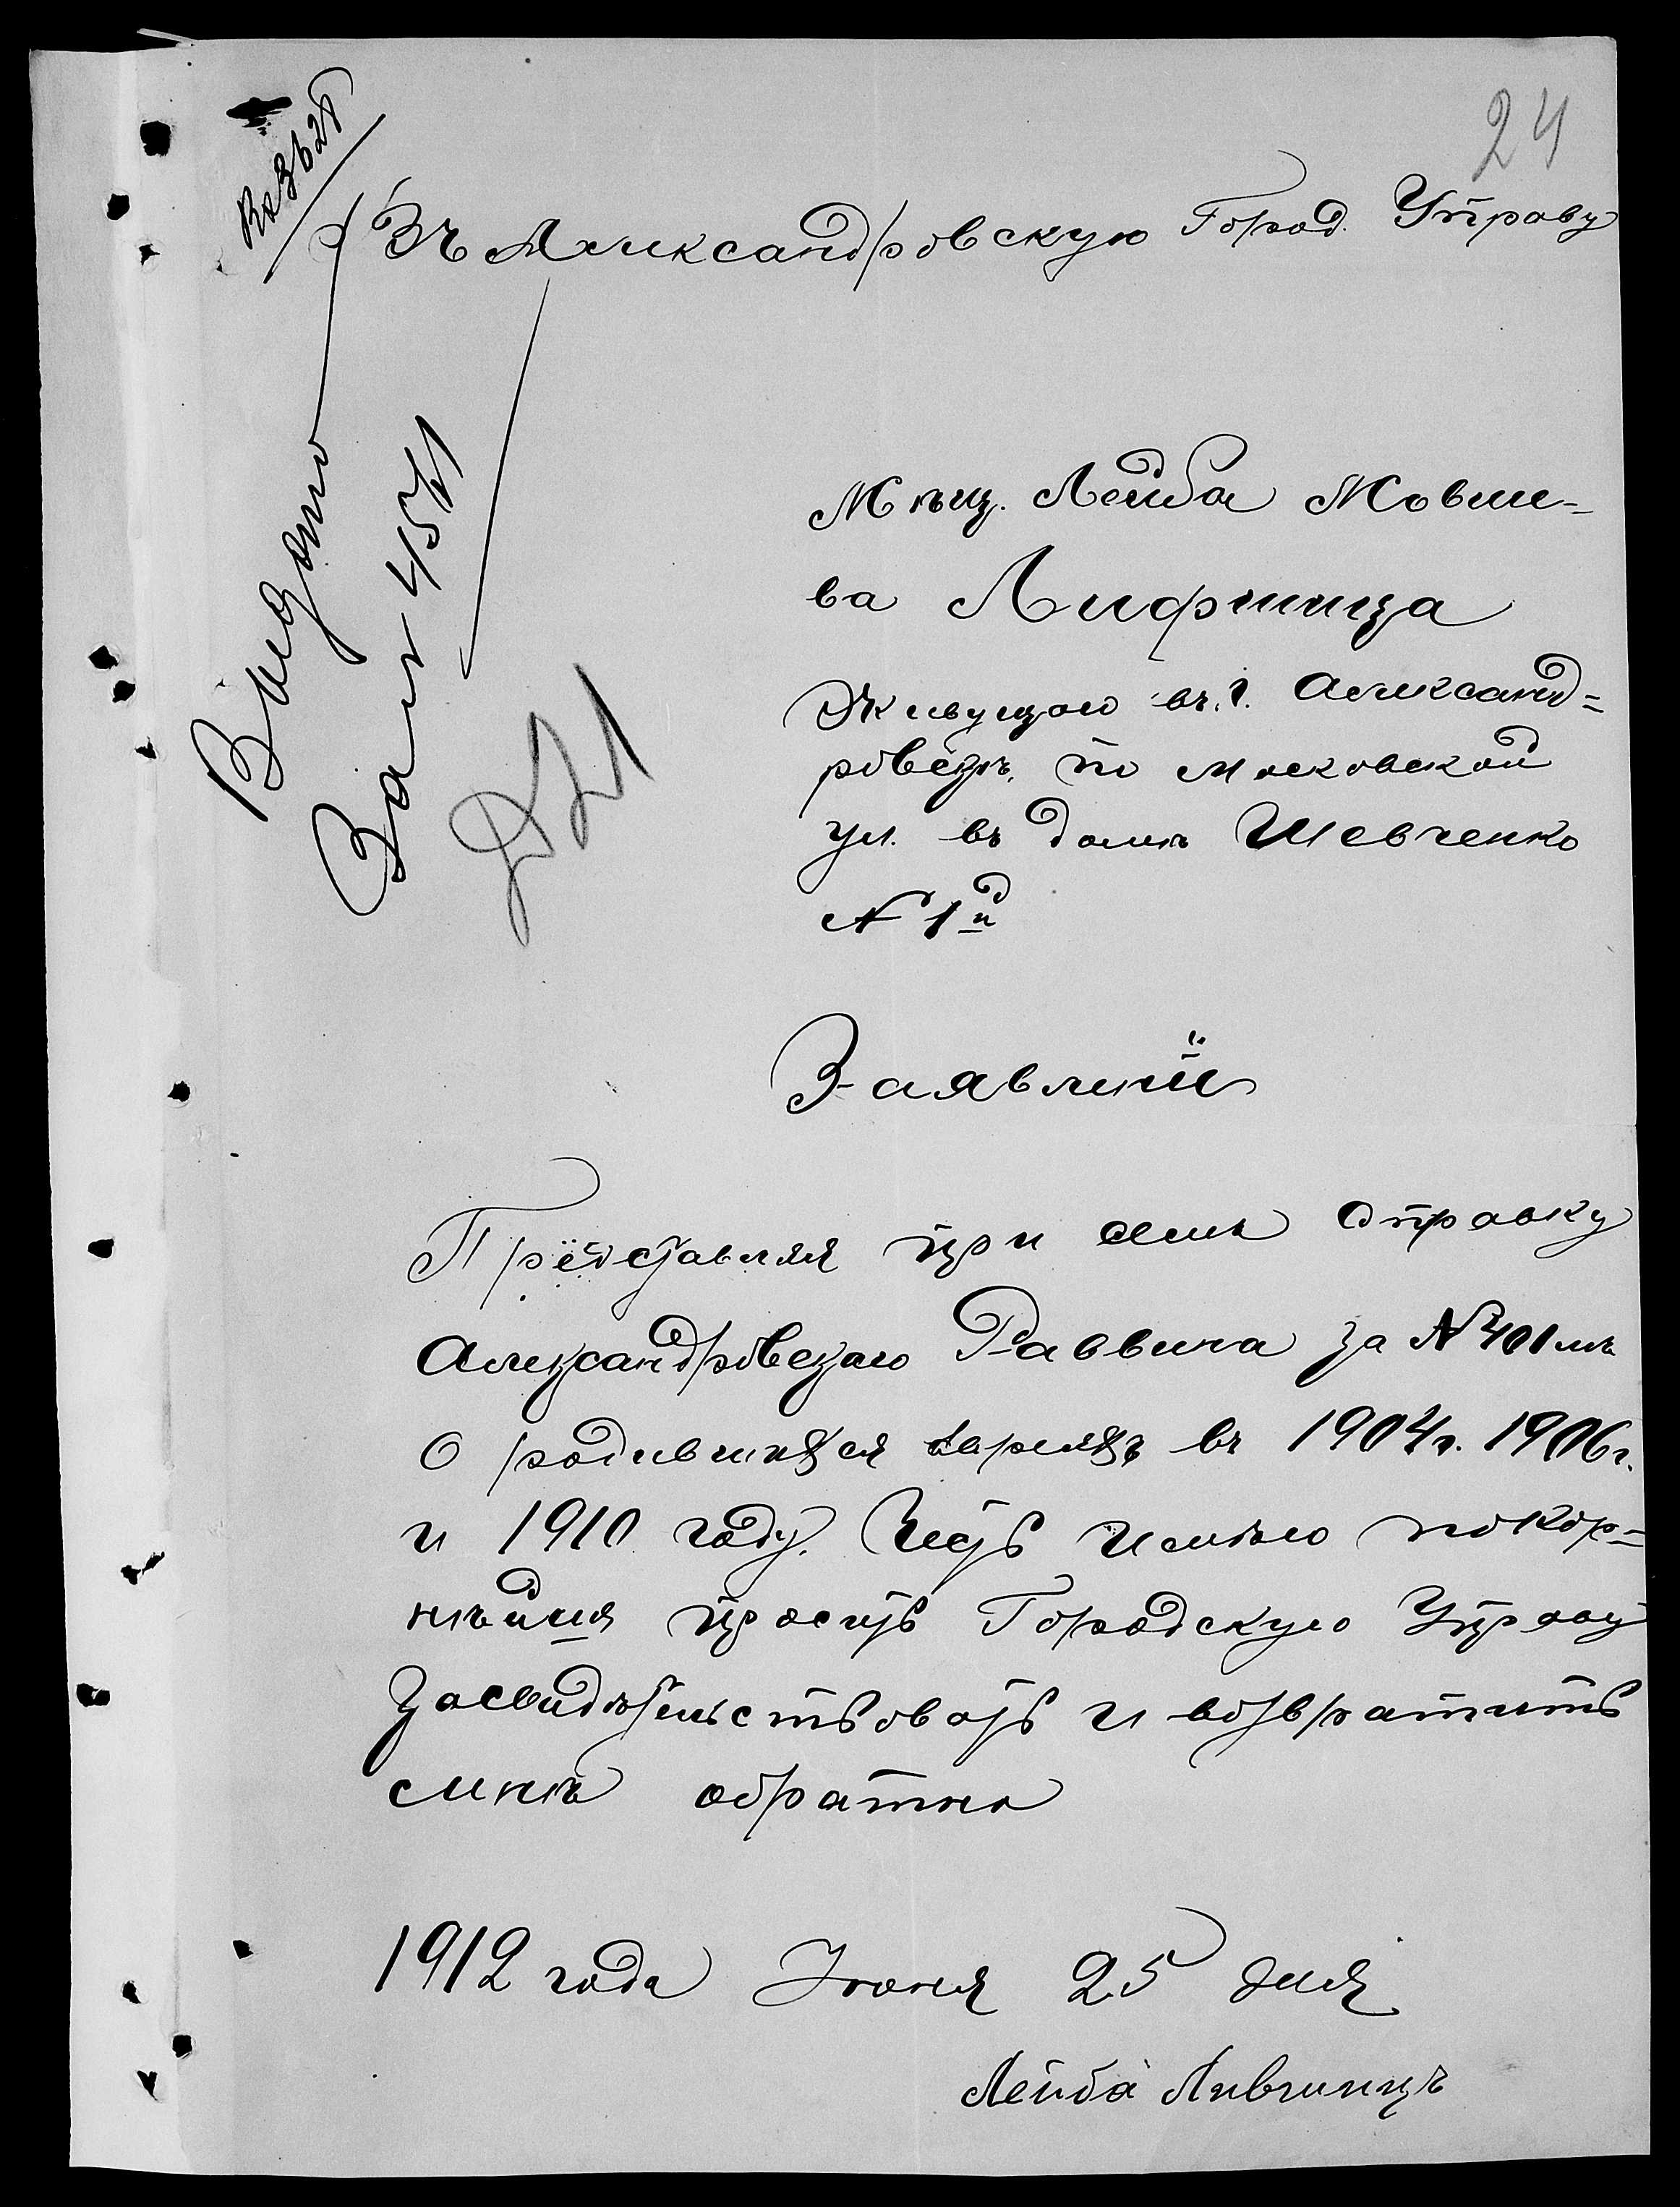 24
Въ Александровскую Город. Управу
Выдано
Зал 4571
Мѣщ. Лейба Мовше-
ва Лифшица
Живущаго въ г. Александ=
ровскѣ, по Московской
ул. въ домѣ Шевченко
№ 1й
Заявленіе
Представляя при семъ справку
Александровскаго Раввина за № 401мъ
О родившихся дѣтяхъ въ 1904 г. 1906 г.
и 1910 году. Честь имѣю покор=
нѣйше просить Городскую Управу
засвидѣтельствовать и возвратить
мнѣ обратно
1912 года Іюня 25 дня
Лейба Лившицъ